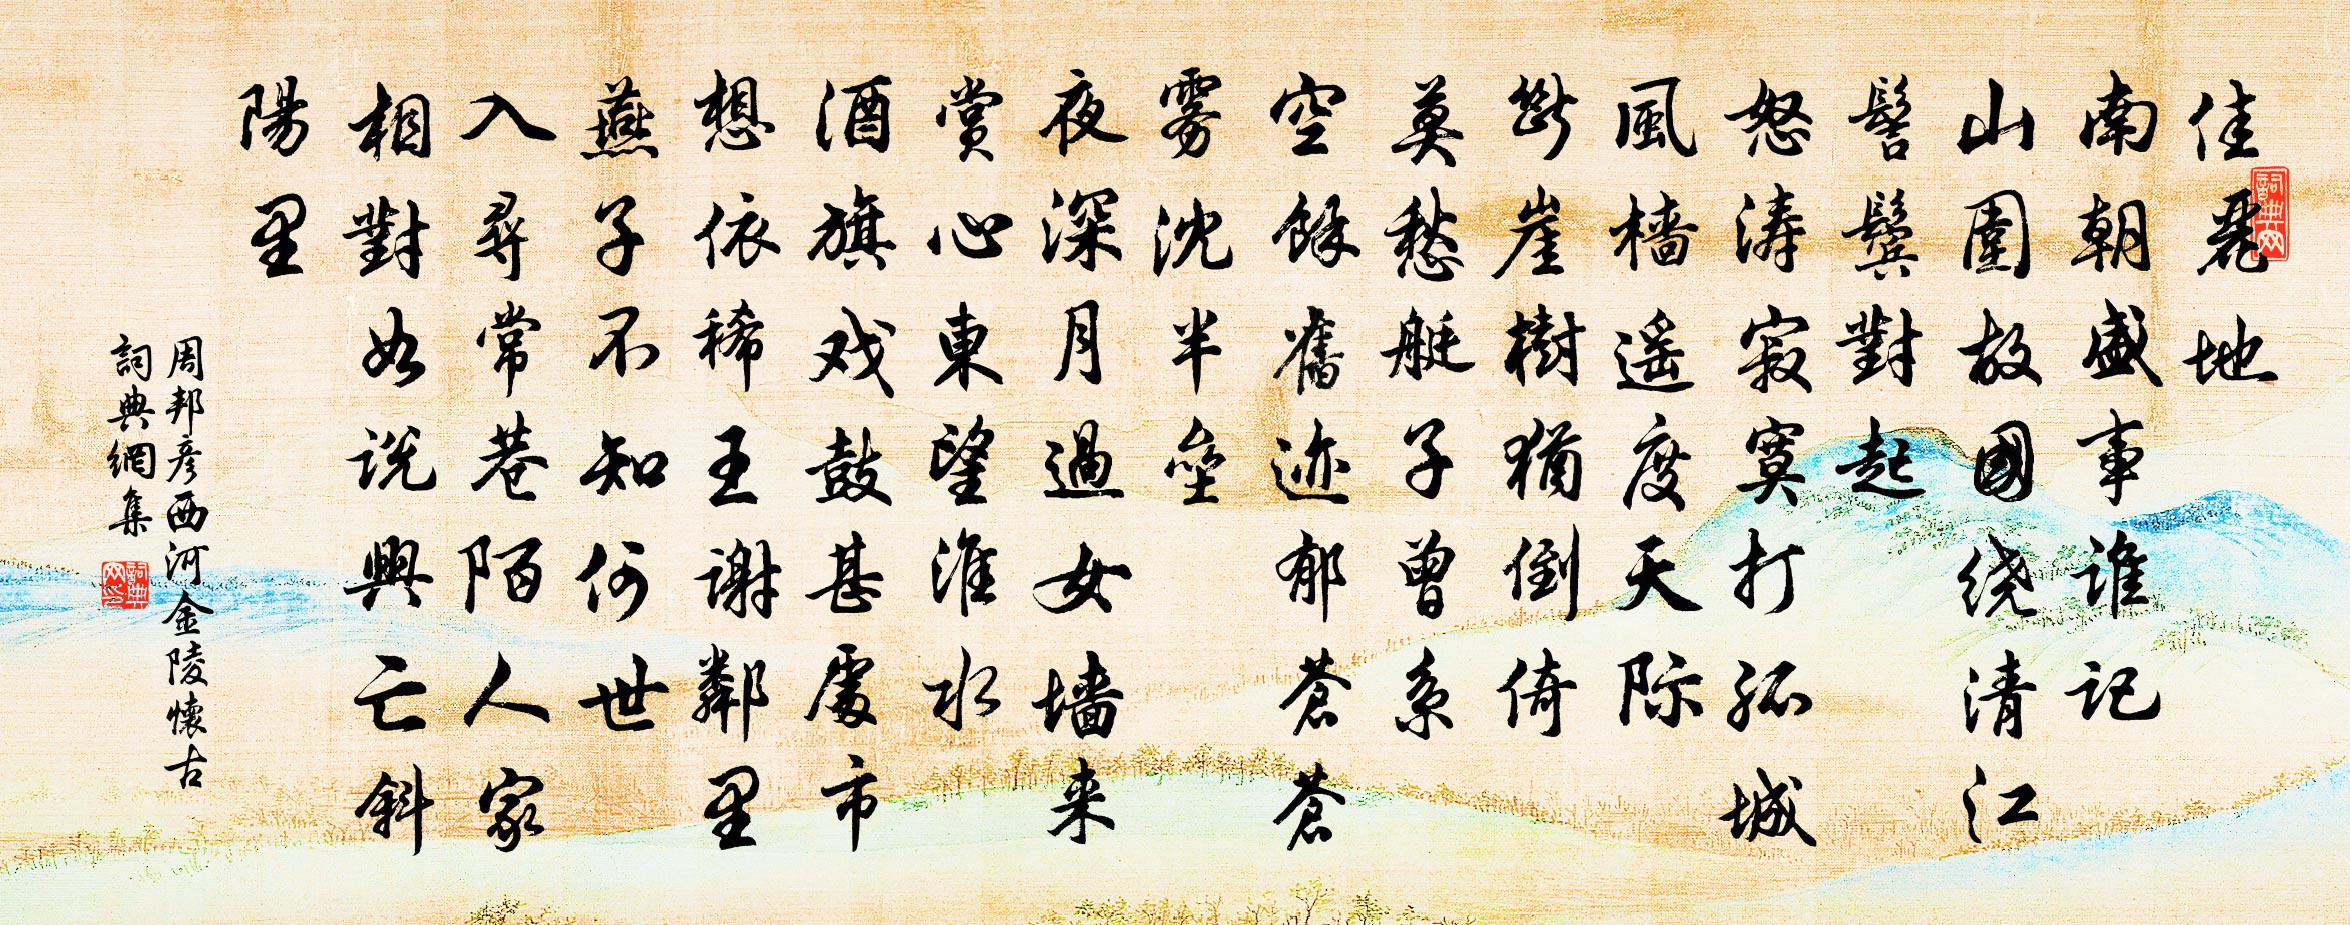 佳麗地
南朝盛事誰记
山圍故國绕清江
髻鬟對起
怒涛寂寞打孤城
風樯遥度天际
斷崖樹猶倒倚
莫愁艇子曾系
空餘舊迹郁蒼蒼
雾沈半壘
夜深月過女墙来
賞心東望淮水
酒旗戏鼓甚處市
想依稀王謝鄰里
燕子不知何世
入尋常巷陌人家
相對如说興亡斜
陽里
周邦彦西河金陵懷古
詞典網集